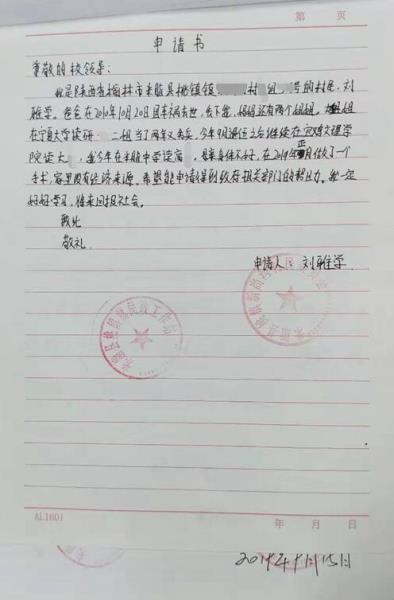 第 页
申请书
尊敬的校领导:
我是陕西省榆林市米脂县桃镇镇 村 组 号的村民,刘
雅学。爸爸在2010年10月20日因车祸去世,丢下我,妈妈还有两个姐姐,大姐
在宁夏大学读研,二姐当了两年义务兵,今年9月退伍之后继续在 理学
院读大 ,我今年在米脂中学读高 ,母亲身体不好,在2019年 月做了一个
手术,家里没有经济来源。希望能申请得到政府相关部门的帮助。我一定
好好学习,将来回报社会。
致此
敬礼
申请人:刘雅学
米脂县桃镇镇民政工作站
AL1601 年 月 日
2019年9月15日